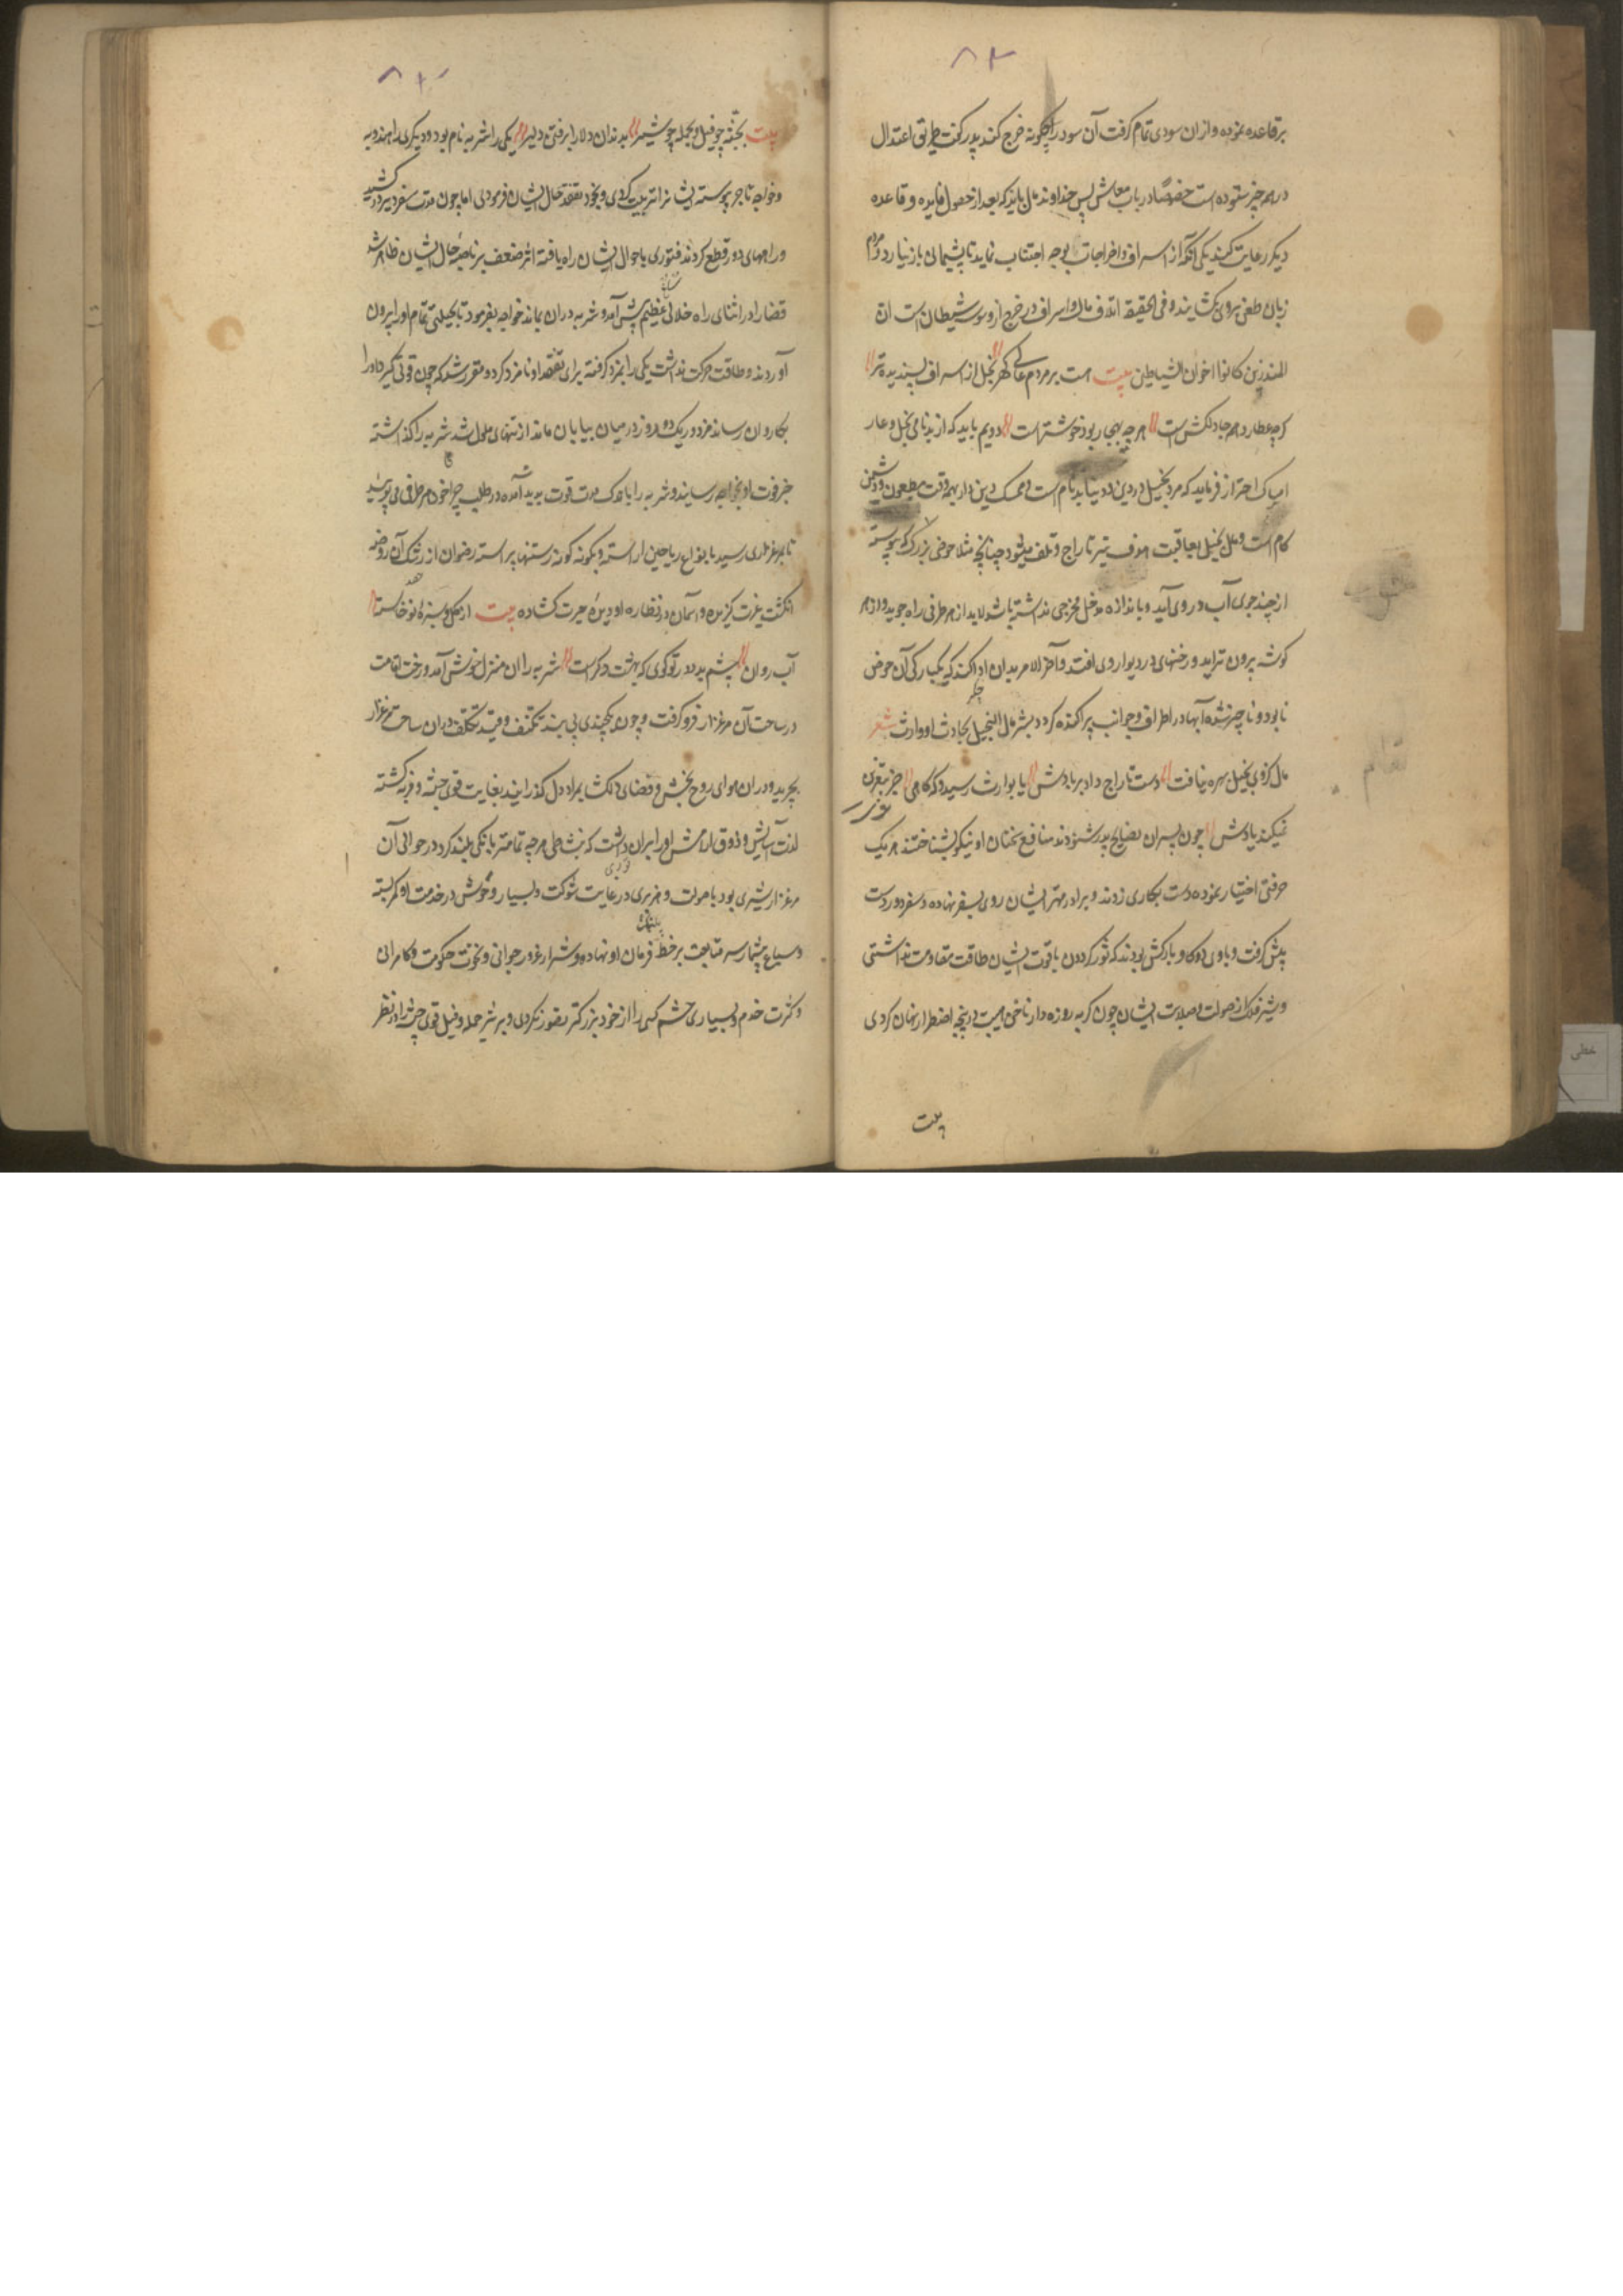 ۸۲
بر قاعده نموده و از ان سودی تمام کرفت آن سود را چکونه خرج کند پدر کفت طریق اعتدال
در همه چیز ستوده است خصوصًا در باب معاش پس خداوند مال باید که بعد از حصول فایده و قاعده
دیکر رعایت کند یکی آنکه از اسراف و اخراجات بوجه اجتناب نماید تا پشیمانی باز نیارد و مردم
زبان طعن برو نکشایند و فی الحقیقه اتلاف مال و اسراف در خرج از وسوسه شیطان است ان
المبذرین کانوا اخوان الشیاطین بیت هست بر مردم عالی کهر بخل از اسراف پسندیده تر
کرچه عطا در همه جا دلکش است هر چه بهنجار بود خوشتر است دویم باید که از بدنامی بخل و عار
امساک احتراز فرماید که مرد بخیل در دین و دنیا بدنام است و ممسک دین دار بهمه وقت مطعون و دشمن
کام است و مال بخیل بعاقبت هدف تیر تاراج و تلف میشود چنانچه مثلا حوضی بزرک که پیوسته
از چند جوی آب در وی آید و باندازه مدخل مخرجی نداشته باشد لابد از هر طرفی راه جوید و از هر
کوشه بیرون تراید و رخنهای در دیوار وی افتد و آخر الامر بدان ادا کند که یکبارکی آن حوض
نابود و ناچیز شده آبها در اطراف و جوانب پراکنده کردد بشر مال البخیل بحادث او وارث شعر
مال کزوی بخیل بهره نیافت دست تاراج داد بر بادش یا بوارث رسید و که کاهی جز بنفرین
نمیکند یادش چون پسران نصایح پدر شنودند منافع سخنان او نیکو بشناختند هر یک
حرفتی اختیار نموده دست بکاری زدند و برادر مهتر ایشان روی بسفر نهاده و سفر دور دست
پیش کرفت و با وی دو کاو بارکش بودند که ثور کردون با قوت ایشان طاقت مقاومت نداشتی
و شیر فلک از صولت و صلابت ایشان چون کربه روزه دار ناخن هیبت در پنجه اضطرار نهان کردی
بیت
بیت بجثه چو فیل و بحمله چو شیر بدندان دلارا برفتن دلیر یکی را شنزبه نام بود و دیکری را مندوبه
و خواجه تاجر پیوسته ایشانرا تربیت کردی و بخود تفقد حال ایشان فرمودی اما چون مدت سفر دیر در کشید
و راههای دور قطع کردند فتوری باحوال ایشان راه یافته اثر ضعف بر ناصیه حال ایشان ظاهر شد
قضا را در اثنای راه خلابی عظیم پیش آمد و شنزبه در ان بماند خواجه بفرمود تا بحیلتی تمام او را بیرون
آوردند و طاقت حرکت نداشت یکی را بمزد کرفته برای تفقد او نامزد کرد و مقرر شد که چون قوتی کیرد او را
بکاروان رساند مزدور یک دو روز در میان بیابان ماند از تنهای ملول شد شنزبه را کذاشته
خبر فوت او بخواجه رسانید و شنزبه را باندک مدت قوت پدید آمده در طلب چراخور هر طرفی می پوئید
تا بمرغزاری رسید بانواع ریاحین اراسته و بکونه کونه رستنها پیراسته رضوان از رشک آن روضه
انکشت غیرت کزیده و آسمان در نظاره او دیده حیرت کشاده بیت از کل و سبزه نو خاسته
آب روان چشم بد دور تو کوی که بهشت دکر است شنزبه را ان منزل خوش آمد و رخت اقامت
در ساحت آن مرغزار فرو کرفت و چون یکچندی بی بند تکلف و قید تکلف در ان ساحت مرغزار
بچرید و در ان هوای روح بخش و فضای دلکشا بمراد دل کذرانید بغایت قوی جثه و فربه کشته
لذت آسایش و ذوق ارامش او را بران داشت که بنشاطی هر چه تمامتر بانکی بلند کرد در حوالی آن
مرغزار شیری بود با صولت و هزبری در غایت شوکت و بسیار وحوش در خدمت او کمر بسته
و سباع بیشمار سر متابعت بر خط فرمان او نهاده و شیر از غرور جوانی و نخوت حکومت و کامرانی
و کثرت خدم و بسیاری حشم کسی را از خود بزرکتر تصور نکردی و ببر تیز حمله و فیل قوی جثه را در نظر